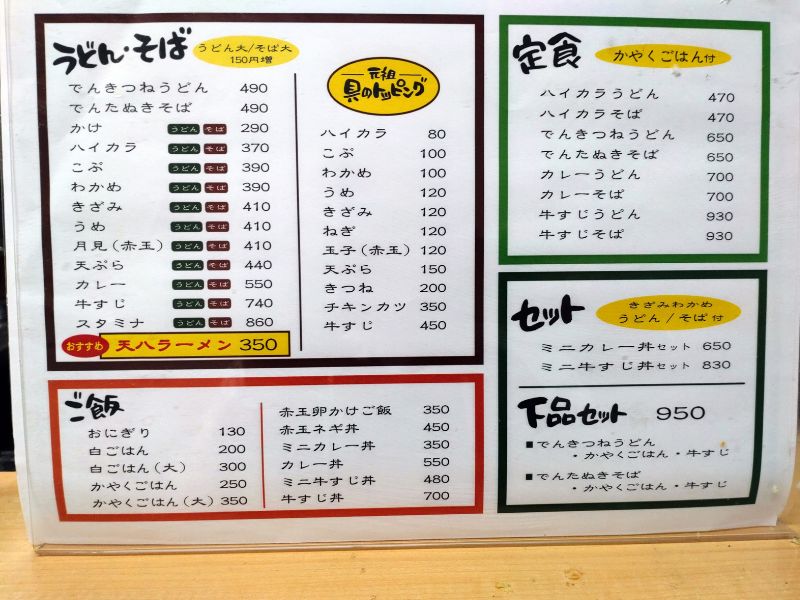 うどん・そば
うどん大/そば大
150円増
でんきつねうどん 490
でんたぬきそば 490
かけ うどん そば 290
ハイカラ うどん そば 370
こぶ うどん そば 390
わかめ うどん そば 390
きざみ うどん そば 410
うめ うどん そば 410
月見(赤玉) うどん そば 410
天ぷら うどん そば 440
カレー うどん そば 550
牛すじ うどん そば 740
スタミナ うどん そば 860
おすすめ 天八ラーメン 350
元祖
具のトッピング
ハイカラ 80
こぶ 100
わかめ 100
うめ 120
きざみ 120
ねぎ 120
玉子(赤玉) 120
天ぷら 150
きつね 200
チキンカツ 350
牛すじ 450
ご飯
おにぎり 130
白ごはん 200
白ごはん(大) 300
かやくごはん 250
かやくごはん(大) 350
赤玉卵かけご飯 350
赤玉ネギ丼 450
ミニカレー丼 350
カレー丼 550
ミニ牛すじ丼 480
牛すじ丼 700
定食
かやくごはん付
ハイカラうどん 470
ハイカラそば 470
でんきつねうどん 650
でんたぬきそば 650
カレーうどん 700
カレーそば 700
牛すじうどん 930
牛すじそば 930
セット
きざみわかめ
うどん/そば付
ミニカレー丼セット 650
ミニ牛すじ丼セット 830
下品セット 950
■でんきつねうどん
・かやくごはん・牛すじ
■でんたぬきそば
・かやくごはん・牛すじ